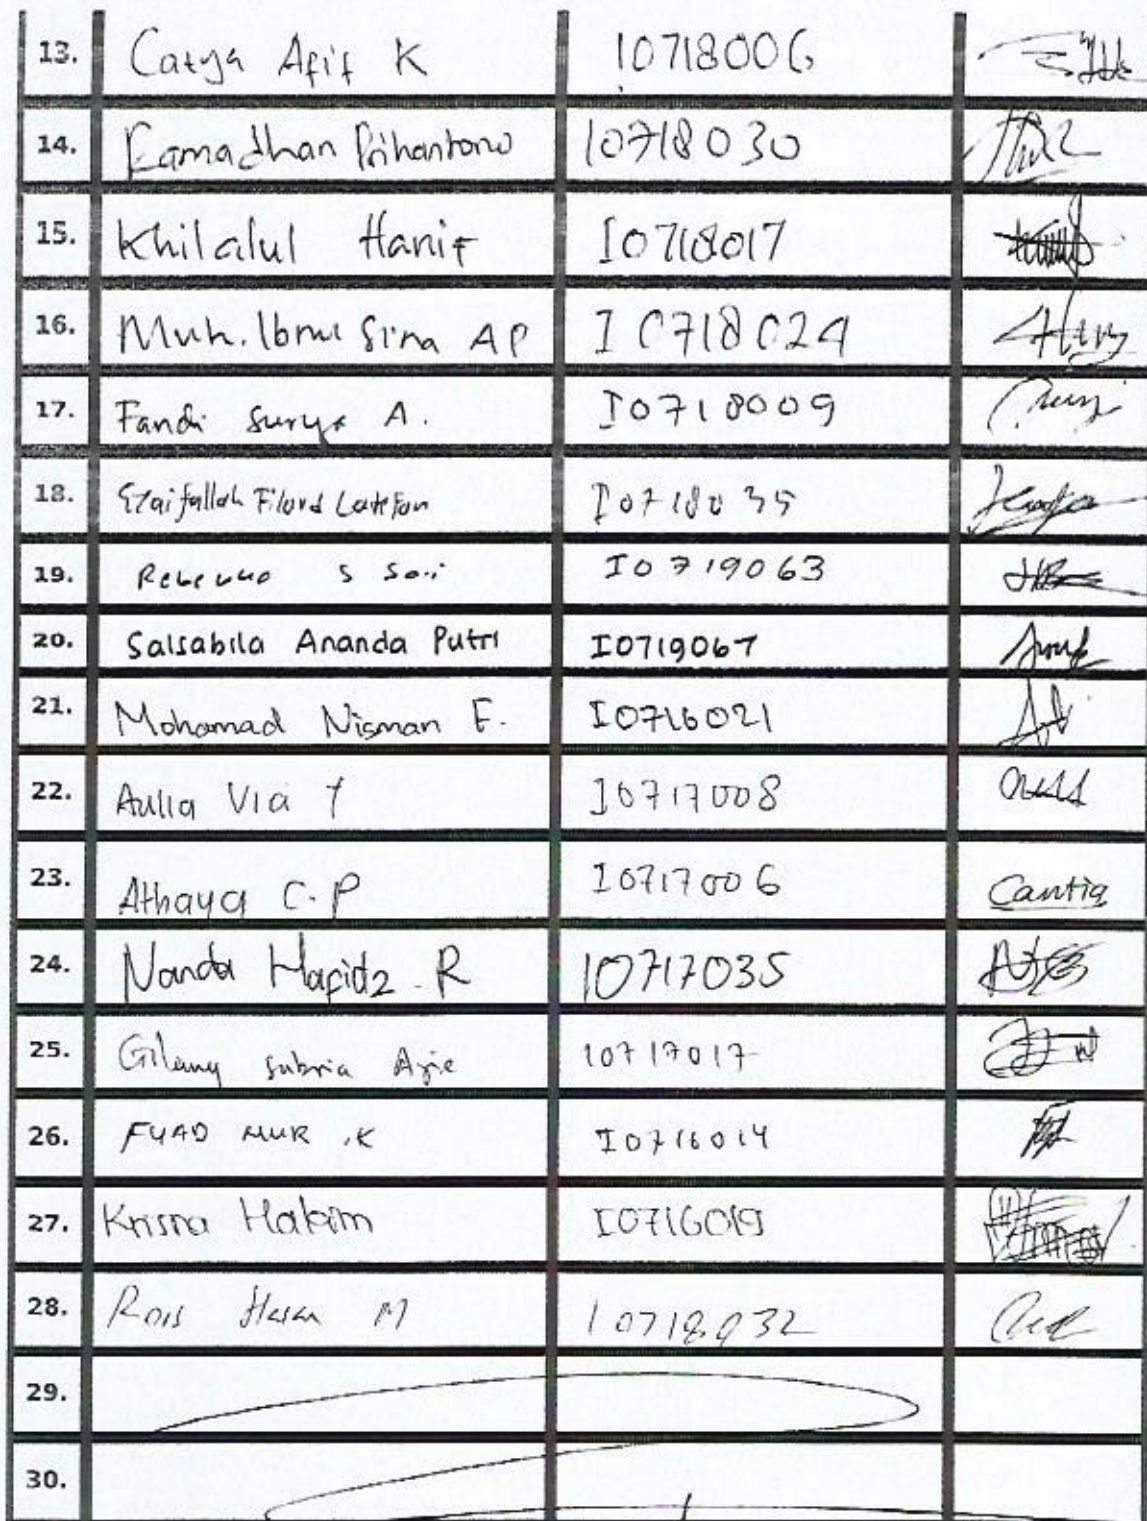 13. Catya Afif K I0718006
14. Ramadhan Prihantono I0718030
15. Khilalul Hanif I0718017
16. Muh. Ibnu Sina AP I0718024
17. Fandi Surya A. I0718009
18. I0718035
19. S Sari I0719063
20. Salsabila Ananda Putri I0719067
21. Mohamad Nisman E. I0716021
22. Aulla Via T I0717008
23. Athaya C.P I0717006 Cantia
24. Nanda Hafidz R I0717035
25. Gilang Subria Ajie I0717017
26. FUAD NUR .K I0716014
27. Krisna Hakim I0716019
28. Rois Hasan M I0718032
29.
30.